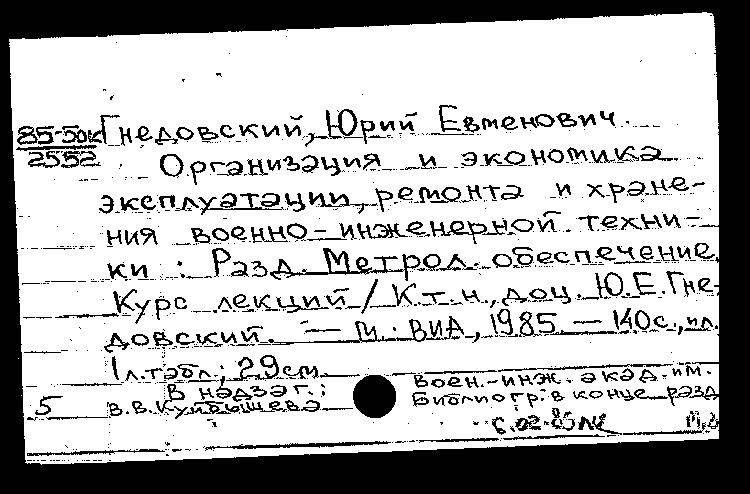 85-50к Гнедовский, Юрий Евменович.
2552 Организация и экономика
эксплуатации, ремонта и хране-
ния военно-инженерной техни-
ки : Разд. Метрол. обеспечение.
Курс лекций / К.т.н., доц. Ю.Е. Гне-
довский. — М. : ВИА, 1985. — 140 с., ил.
1 л. табл.; 29 см.
В надзаг.: Воен.-инж. акад. им.
5 В.В. Куйбышева Библиогр. в конце разд